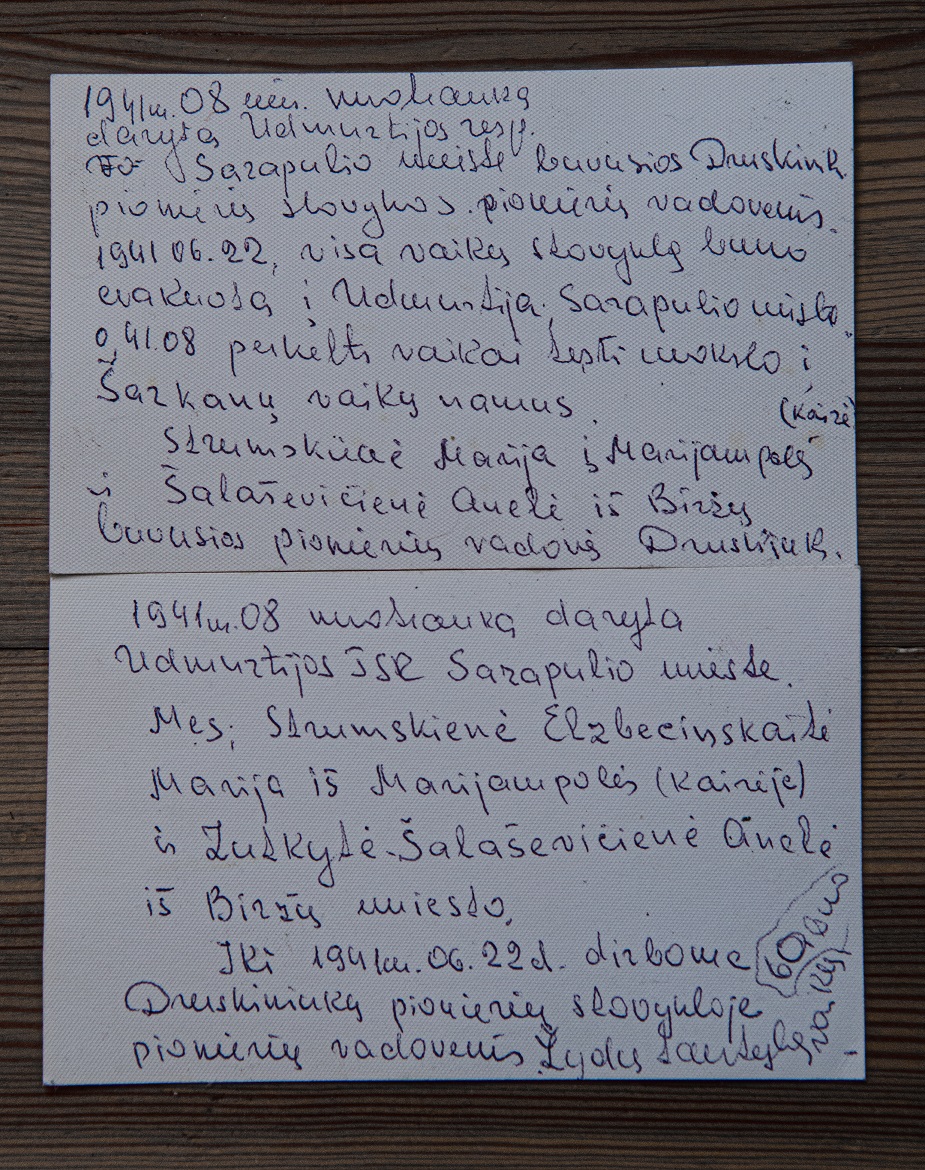 1941m. 08 mėn. nuotrauka
daryta Udmurtijos resp.
Sarapulio mieste buvusios Druskinik.
pionierių stovyklos pionierių vadovėmis.
1941 06.22, visa vaikų stovykla buvo
evakuota į Udmurtiją. Sarapulio miste
o, 41.08 perkelti vaikai tęsti mokslo į
Šarkanų vaikų namus.
(kairė
Strumskienė Marija iš Marijampolės
ir Šalaševičienė Anelė iš Biržų
buvusios pionierių vadovės Druskinik.
1941m. 08 nuotrauka daryta
Udmurtijos TSR Sarapulio mieste.
Mes; Strumskienė Elzbecinskaitė
Marija iš Marijampolės (kairėje)
ir Zutkytė-Šalaševičienė Anelė
iš Biržų miesto,
Iki 1941m. 06. 22d. dirbome
Druskininkų pionierių stovykloje
pionierių vadovėmis Žydų tautybę
60 buvo
vaikų